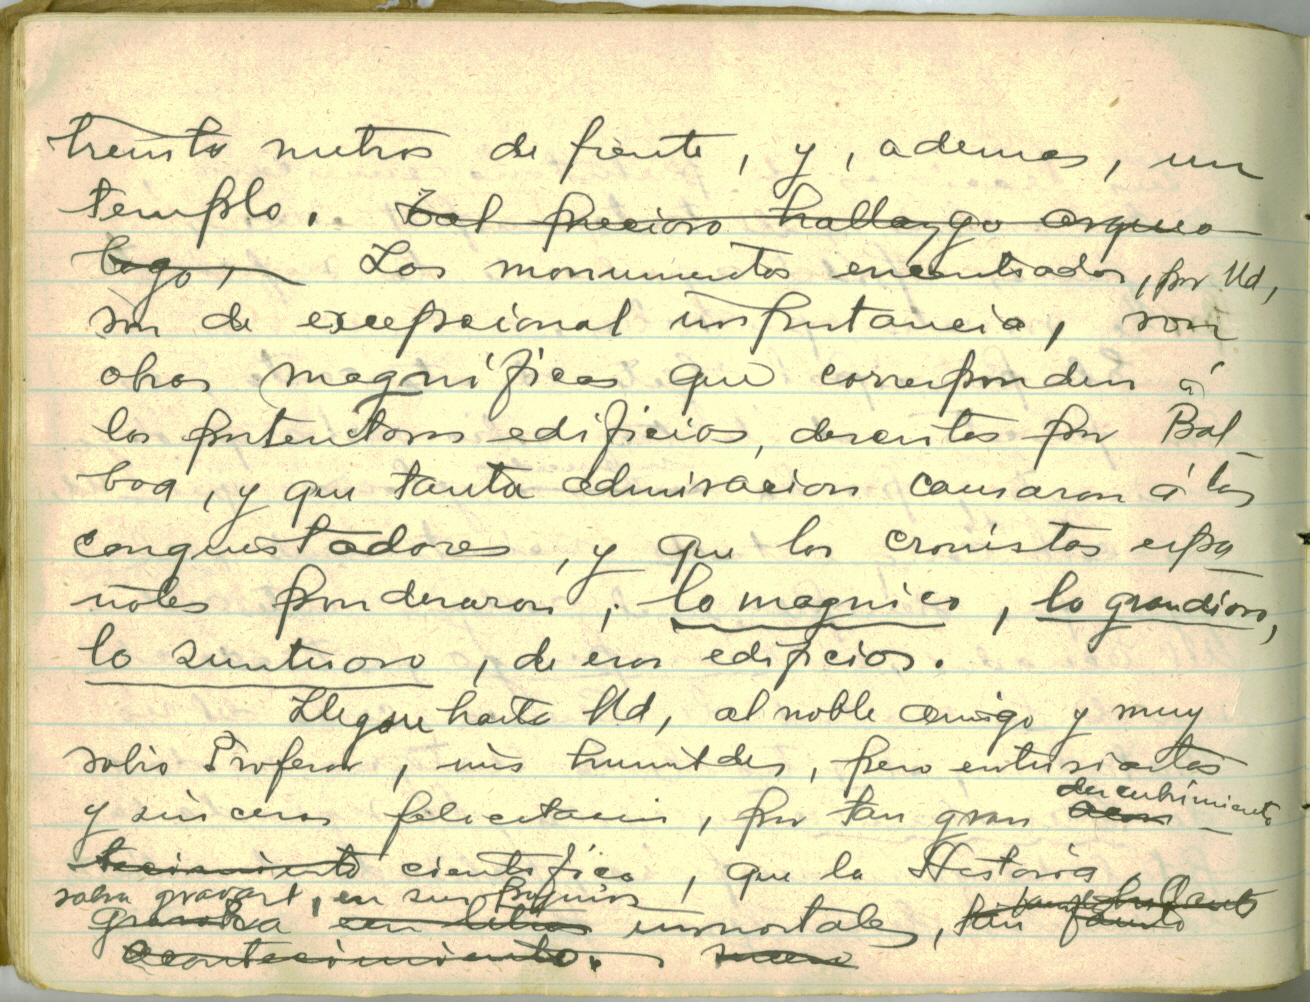 treinta metros de frente, y, ademas, un
templo. Tal precioso hallazgo arqueo-
logo, Los monumentos encontrados, por Ud,
son de excepcional importancia, son
obras magníficas que corresponden á
los portentosos edificios, descritos por Bal-
boa, y que tanta admiracion causaron á los
conquistadores, y que los cronistas espa-
ñoles ponderaron, lo magnico, lo grandioso,
lo suntuoso, de esos edificios.
Llegue hasta Ud, al noble amigo y muy
sabio Profesor, mis humildes, pero entusiastas
y sinceras felicitacion, por tan gran acon-
descubrimiento
tecimiento científico, que la Historia
sabra gravart, en sus paginas
gravara con letras inmortales, tan fausto
acontecimiento.